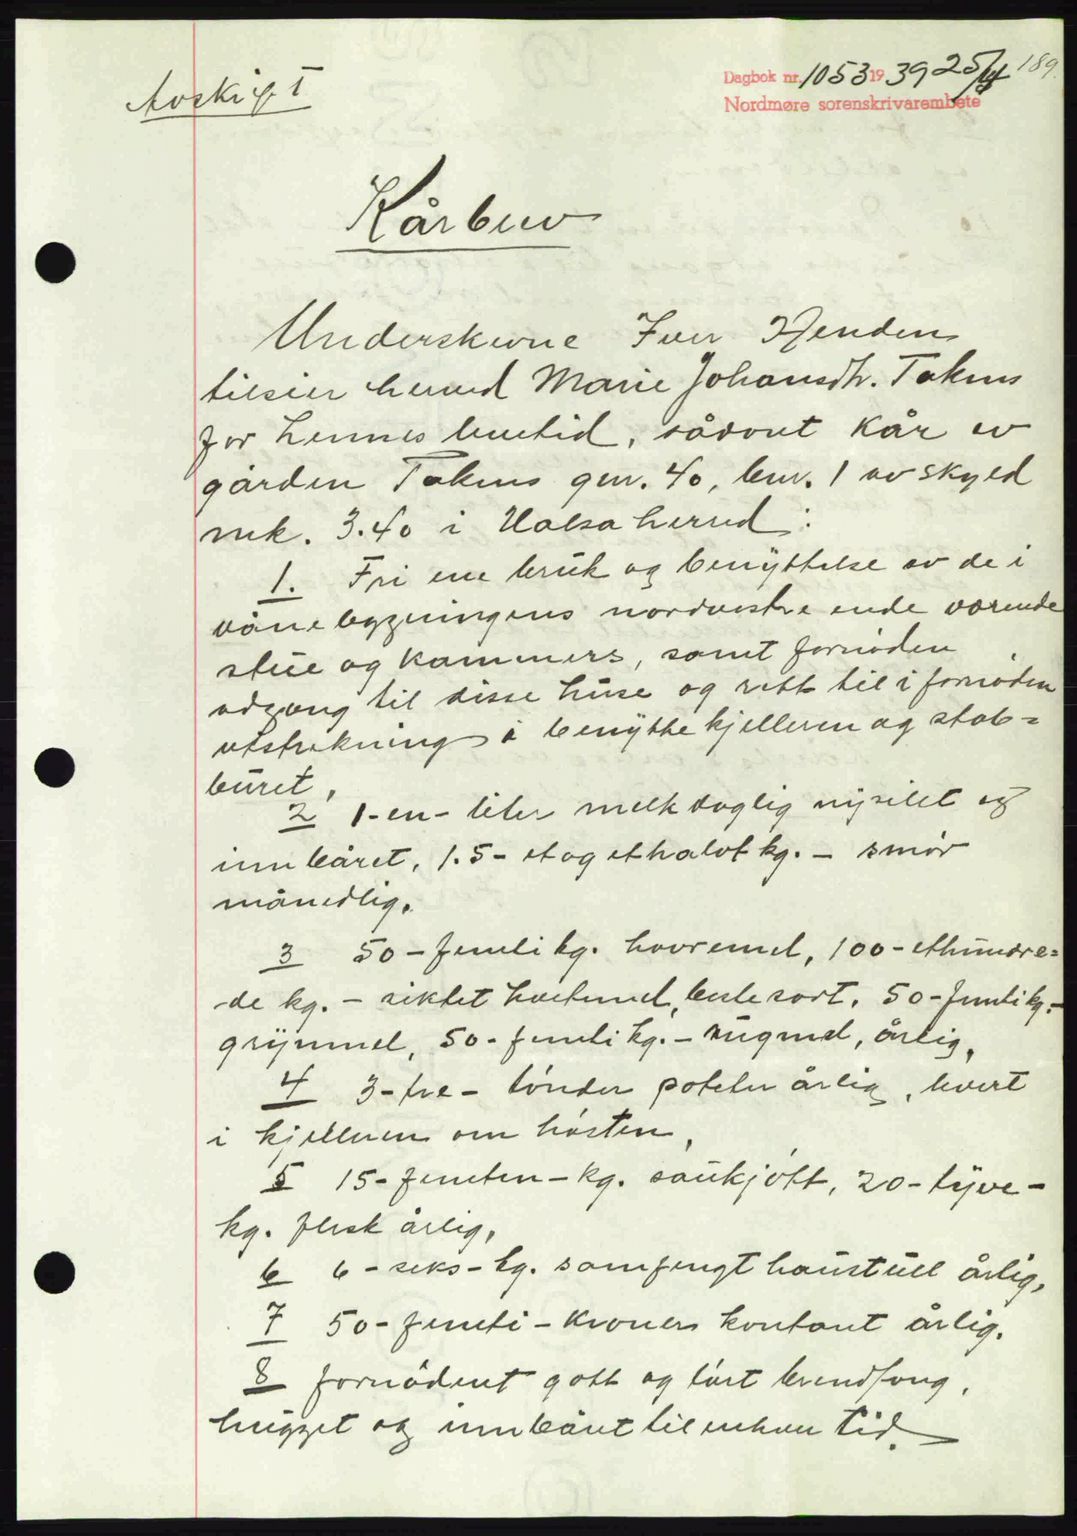 Avskrift
Dagbok nr. 1053 19 39 25/4 189.
Nordmøre sorenskrivarembete
Kårbrev
Underskrevne Iver Henden
tilsier herved Marie Johansdtr. Taknes
for hennes levetid, sådant kår av
gården Taknes gnr. 40, bnr. 1 av skyld
mrk. 3.40 i Halsa herred:
1. Fri ene bruk og benyttelse av de i
vånebygningens nordvestre ende værende
stue og kammers, samt fornøden
adgang til disse huse og rett til i fornøden
utstrekning å benytte kjelleren og stab=
buret.
2 1-en- liter melk daglig nysilet og
innbåret, 1.5- et og et halvt kg. - smør
månedlig.
3 50-femti kg. havremel, 100-ethundre=
de kg. - siktet hvetemel, beste sort. 50-femti kg.-
grynmel, 50-femti kg.- rugmel, årlig.
4 3-tre- tønder poteter årlig, levert
i kjelleren om høsten.
5 15-femten-kg. saukjøtt, 20-tyve-
kg. flesk årlig.
6 6-seks-kg. samfengt haustull årlig.
7 50-femti-kroner kontant årlig.
8 fornødent gott og tørt brendfang,
hugget og innbåret til enhver tid.